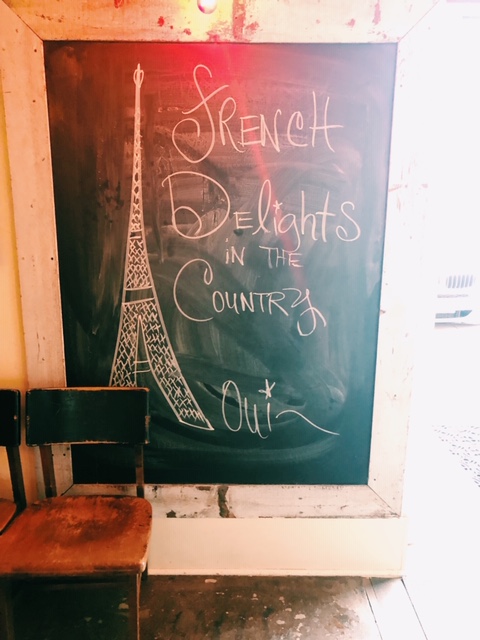 FRENCH
DElights
iN THE
COUNTRy
Oui~